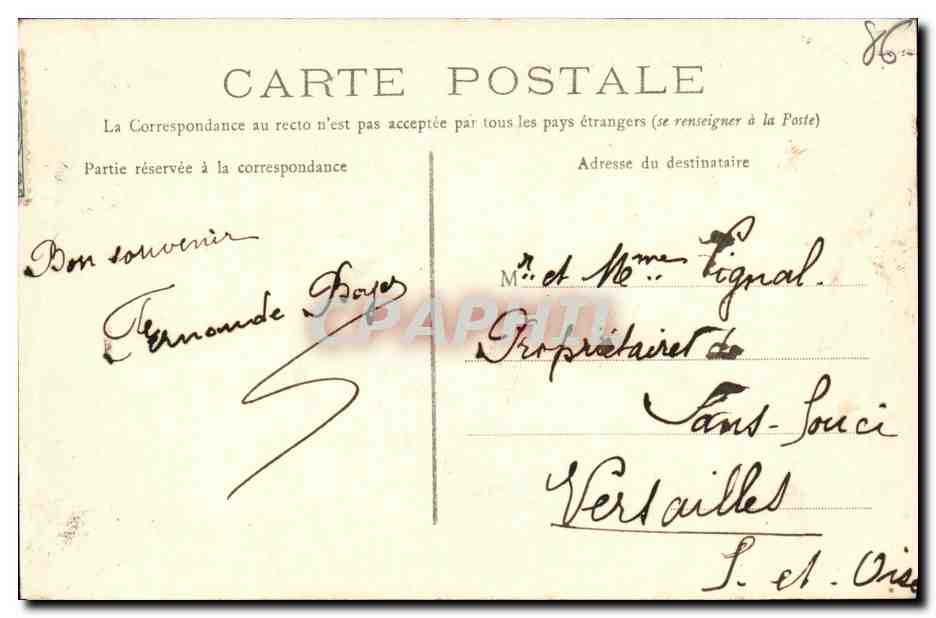 86
CARTE POSTALE
La Correspondance au recto n'est pas acceptée par tous les pays étrangers (se renseigner à la Poste)
Partie réservée à la correspondance
Bon souvenir
Fernande
Adresse du destinataire
Mr. et Mme. Vignal.
Propriétaire de
Sans-Souci
Versailles
S. et. Oise
CPARHII